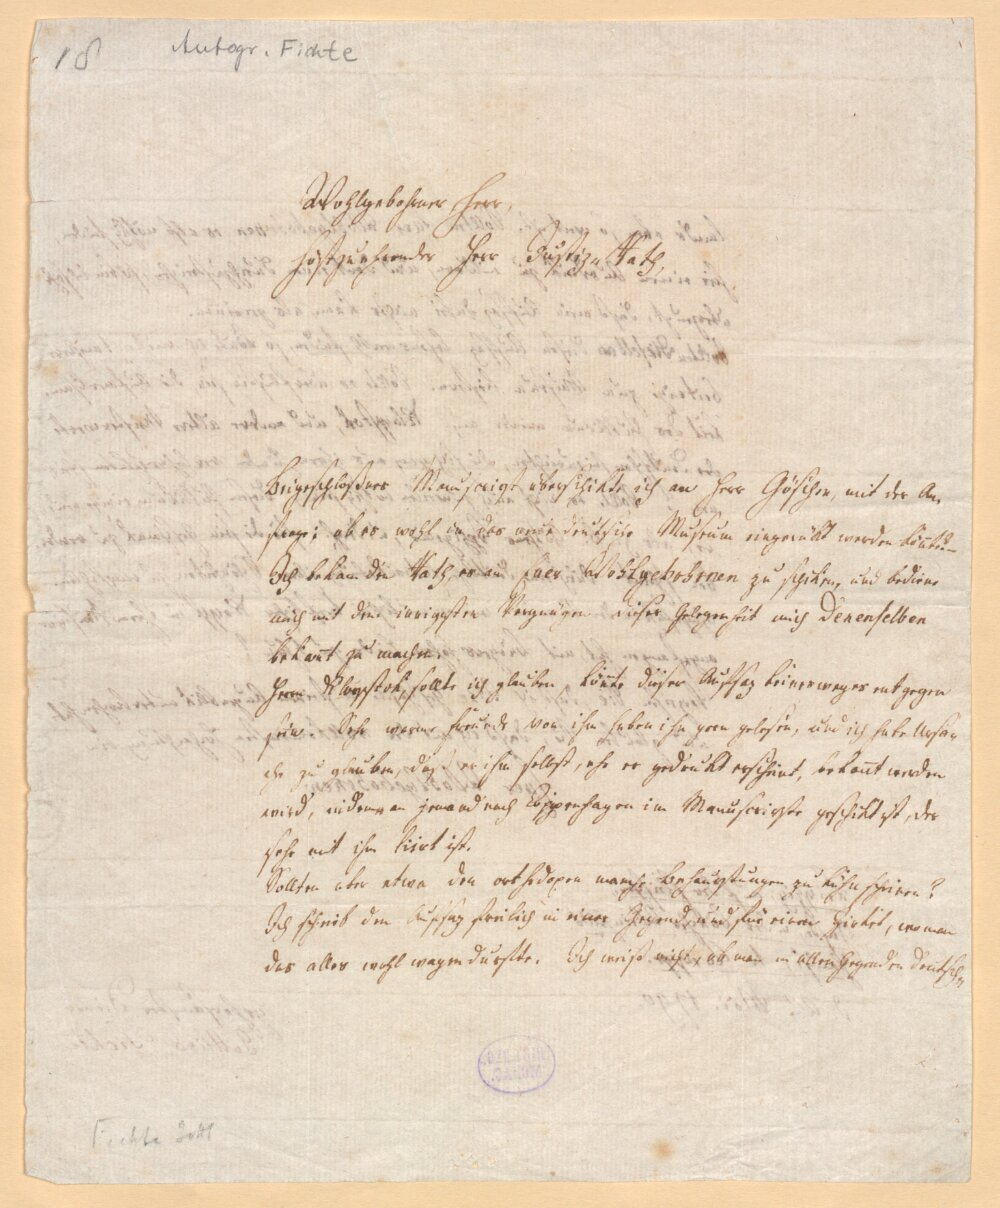 18
Autogr. Fichte
Wohlgebohrner Herr,
Höchstzuehrender Herr Justiz-Rath,
Beigeschloßnes Manuscript überschikte ich an Herr Göschen, mit der An-
frage; ob es wohl in das neue deutsche Museum eingerükt werden könte.
Ich bekam den Rath, es an Euer Wohlgebohrnen zu schiken, und bediene
mich mit dem innigsten Vergnügen dieser Gelegenheit mich Denenselben
bekañt zu machen.
Herrn Klopstok, sollte ich glauben, köñte dieser Aufsaz keinesweges entgegen
seÿn. Sehr warme Freunde von ihm haben ihn gern gelesen, und ich habe Ursa-
che zu glauben, daß er ihm selbst, ehe er gedrukt erscheint, bekañt werden
wird, indem er jemand nach Koppenhagen im Manuscripte geschikt ist, der
sehr mit ihm liirt ist.
Sollten aber etwa den orthodoxen manche Behauptungen zu kühn scheinen?
Ich schrieb den Aufsaz freilich in einer Gegend, und für einen Zirkel, wo man
das alles wohl wagen durfte. Ich weiß nicht, ob man in allen Gegenden Deutsch-
Fichte Gottl